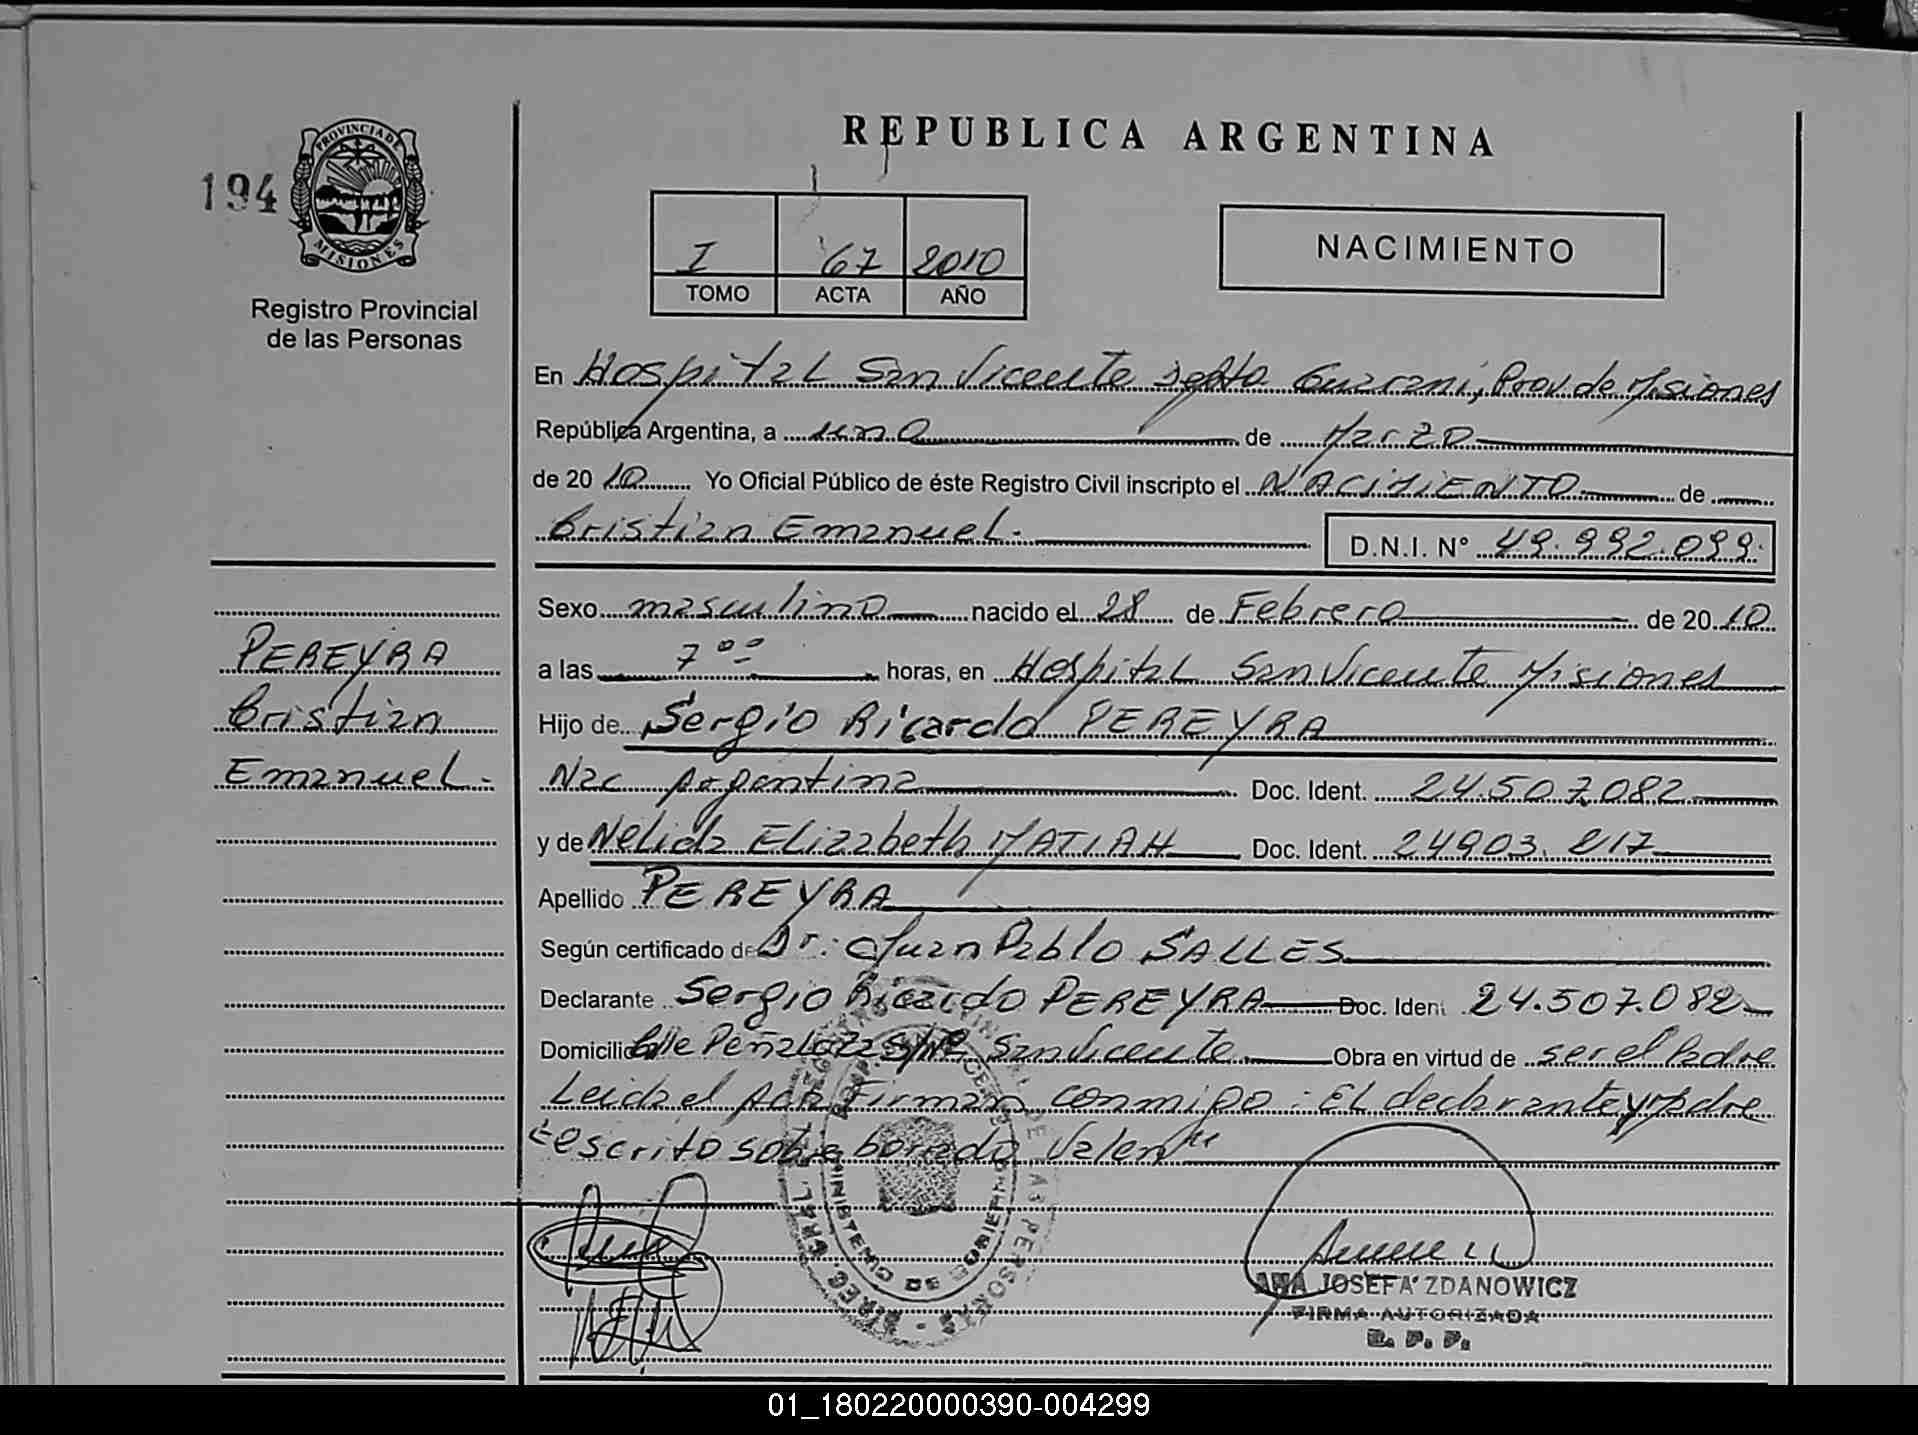 REPUBLICA ARGENTINA
194
PROVINCIA DE
MISIONES
Registro Provincial
de las Personas
I 67 2010
TOMO ACTA AÑO
NACIMIENTO
En Hospital San Vicente Depto Guarani, Prov. de Misiones
República Argentina, a uno de Marzo
de 20 10 Yo Oficial Público de éste Registro Civil inscripto el NACIMIENTO de
Cristian Emanuel.
D.N.I. Nº 49.992.099.
Sexo masculino nacido el 28 de Febrero de 20 10
a las 7 00 horas, en Hospital San Vicente Misiones
Hijo de Sergio Ricardo PEREYRA
Nac Argentina Doc. Ident. 24.507.082
y de Nelida Elizabeth MATIAH Doc. Ident. 24903.217
Apellido PEREYRA
Según certificado de Dr: Juan Pablo SALLES
Declarante Sergio Ricardo PEREYRA Doc. Ident 24.507.082
Domicilio Calle Peñaloza S/Nº San Vicente Obra en virtud de ser el Padre
Leida el Acta Firman conmigo: El declarante y Madre
"escrito sobre borrado Valen"
PEREYRA
Cristian
Emanuel.
MINISTERIO DE GOBIERNO
ANA JOSEFA ZDANOWICZ
FIRMA AUTORIZADA
R. P. P.
01_180220000390-004299